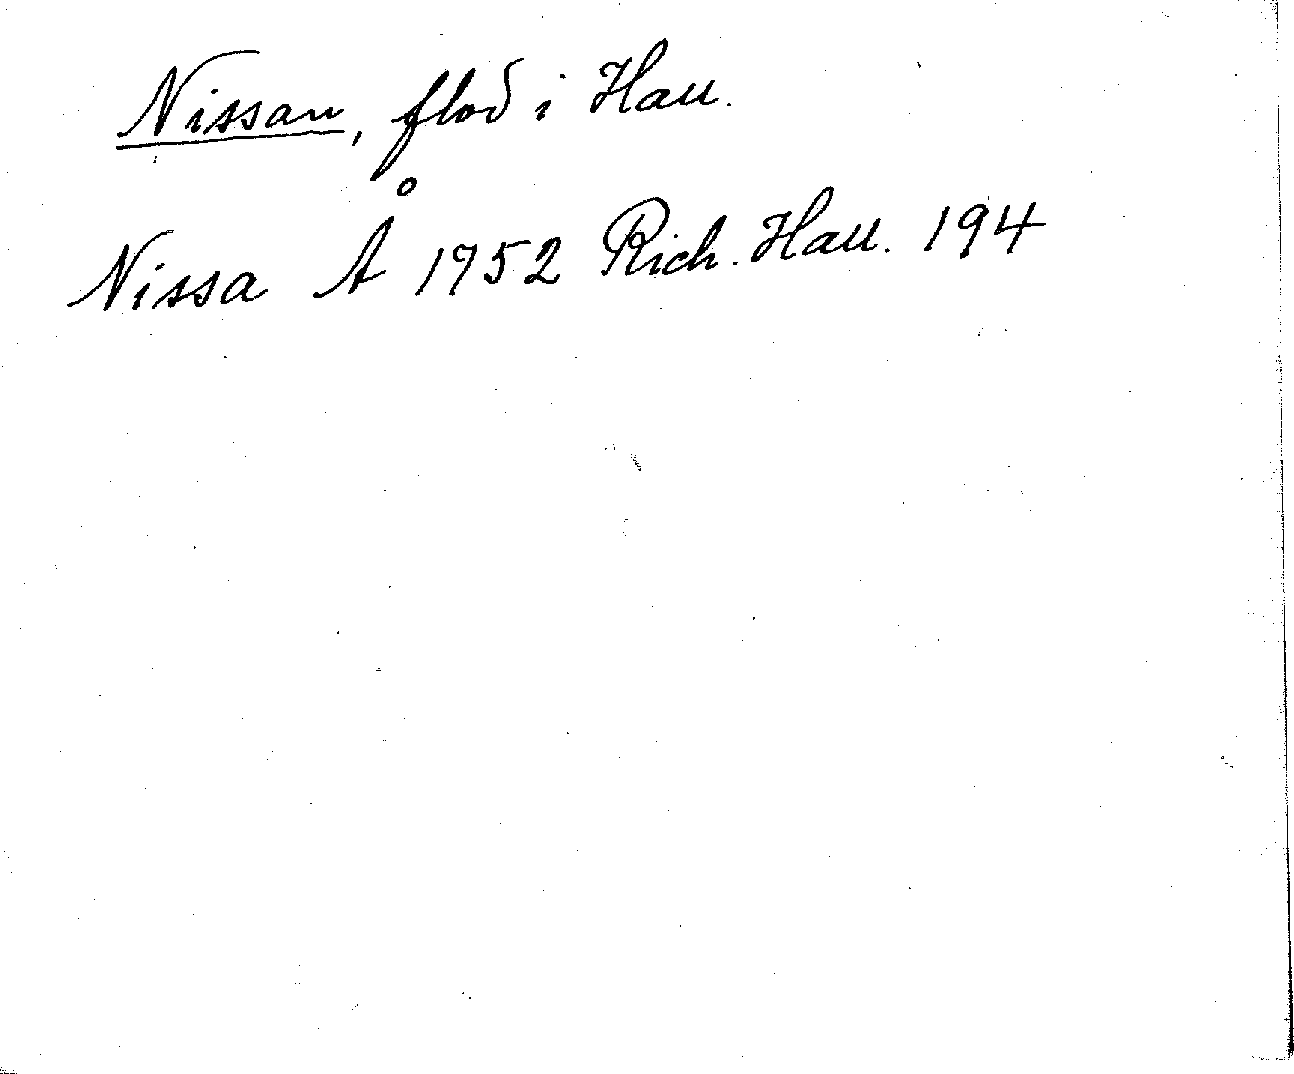 Nissan, flod i Hall.
Nissa Å 1752 Rich. Hall. 194